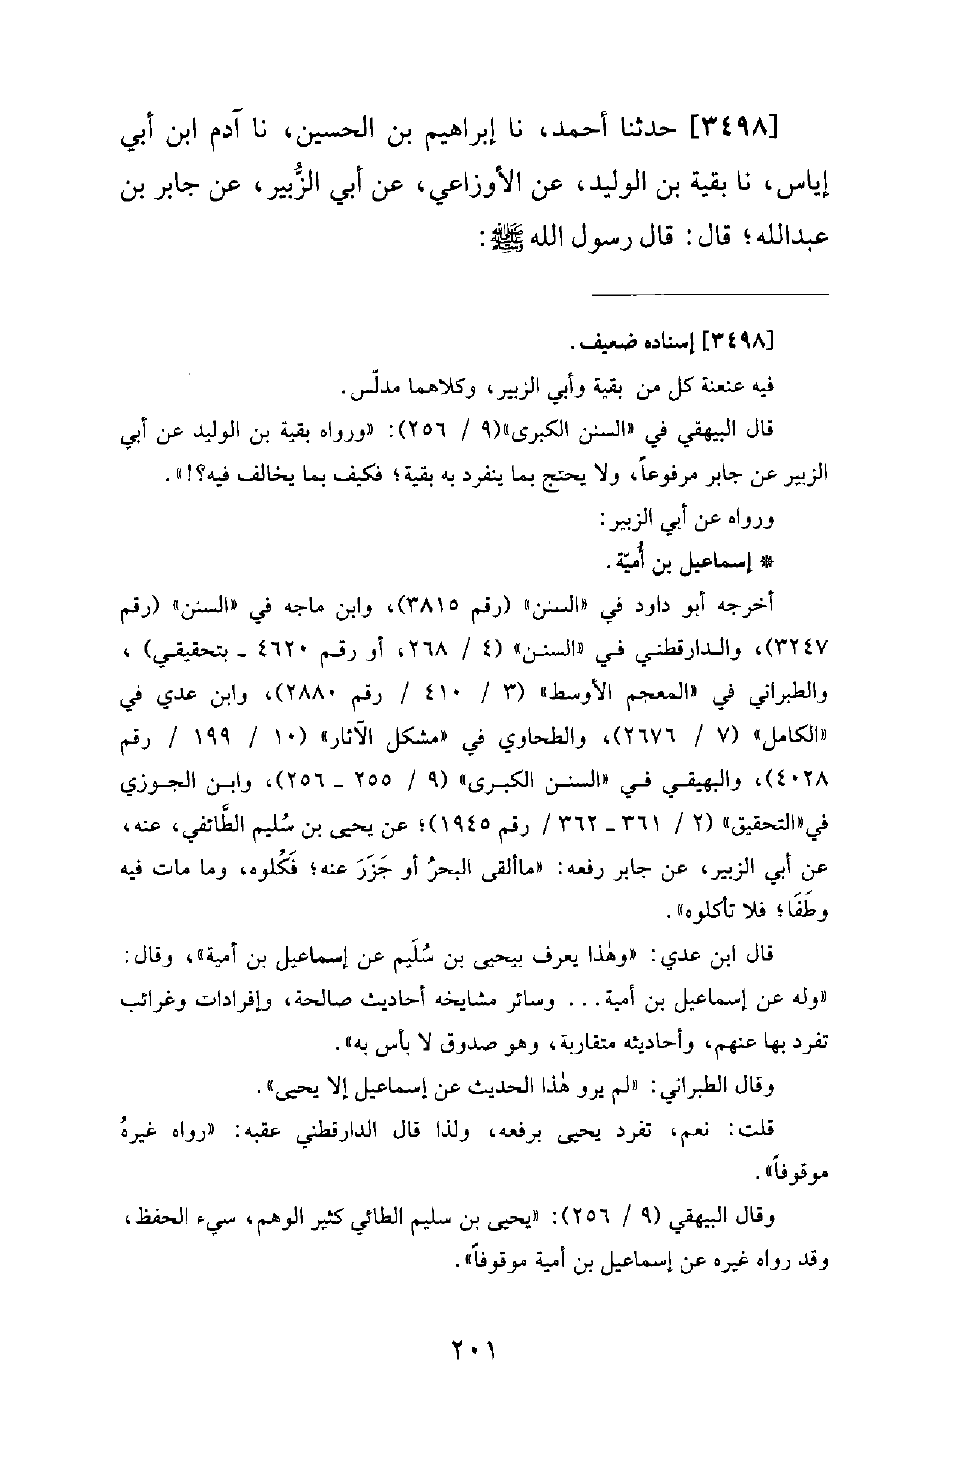 [٣٤٩٨] حدثنا أحمد، نا إبراهيم بن الحسين، نا آدم ابن أبي
إياس، نا بقية بن الوليد، عن الأوزاعي، عن أبي الزُّبير، عن جابر بن
عبدالله؛ قال: قال رسول الله ﷺ:
[٣٤٩٨] إسناده ضعيف.
فيه عنعنة كل من بقية وأبي الزبير، وكلاهما مدلّس.
قال البيهقي في «السنن الكبرى»(٩ / ٢٥٦): «ورواه بقية بن الوليد عن أبي
الزبير عن جابر مرفوعاً، ولا يحتج بما ينفرد به بقية؛ فكيف بما يخالف فيه؟!».
ورواه عن أبي الزبير:
* إسماعيل بن أُميّة.
أخرجه أبو داود في «السنن» (رقم ٣٨١٥)، وابن ماجه في «السنن» (رقم
٣٢٤٧)، والدارقطني في «السنن» (٤ / ٢٦٨، أو رقم ٤٦٢٠ ـ بتحقيقي) ،
والطبراني في «المعجم الأوسط» (٣ / ٤١٠ / رقم ٢٨٨٠)، وابن عدي في
«الكامل» (٧ / ٢٦٧٦)، والطحاوي في «مشكل الآثار» (١٠ / ١٩٩ / رقم
٤٠٢٨)، والبهيقي في «السنن الكبرى» (٩ / ٢٥٥ ـ ٢٥٦)، وابن الجوزي
في«التحقيق» (٢ / ٣٦١ ـ ٣٦٢ / رقم ١٩٤٥)؛ عن يحيى بن سُليم الطَّائفي، عنه،
عن أبي الزبير، عن جابر رفعه: «ماألقى البحرُ أو جَزَرَ عنه؛ فَكُلوه، وما مات فيه
وطَفَا؛ فلا تأكلوه».
قال ابن عدي: «وهٰذا يعرف بيحيى بن سُلَيم عن إسماعيل بن أمية»، وقال:
«وله عن إسماعيل بن أمية... وسائر مشايخه أحاديث صالحة، وإفرادات وغرائب
تفرد بها عنهم، وأحاديثه متقاربة، وهو صدوق لا بأس به».
وقال الطبراني: «لم يرو هٰذا الحديث عن إسماعيل إلا يحيى».
قلت: نعم، تفرد يحيى برفعه، ولذا قال الدارقطني عقبه: «رواه غيرهُ
موقوفاً».
وقال البيهقي (٩ / ٢٥٦): «يحيى بن سليم الطائي كثير الوهم، سيء الحفظ،
وقد رواه غيره عن إسماعيل بن أمية موقوفاً».
٢٠١